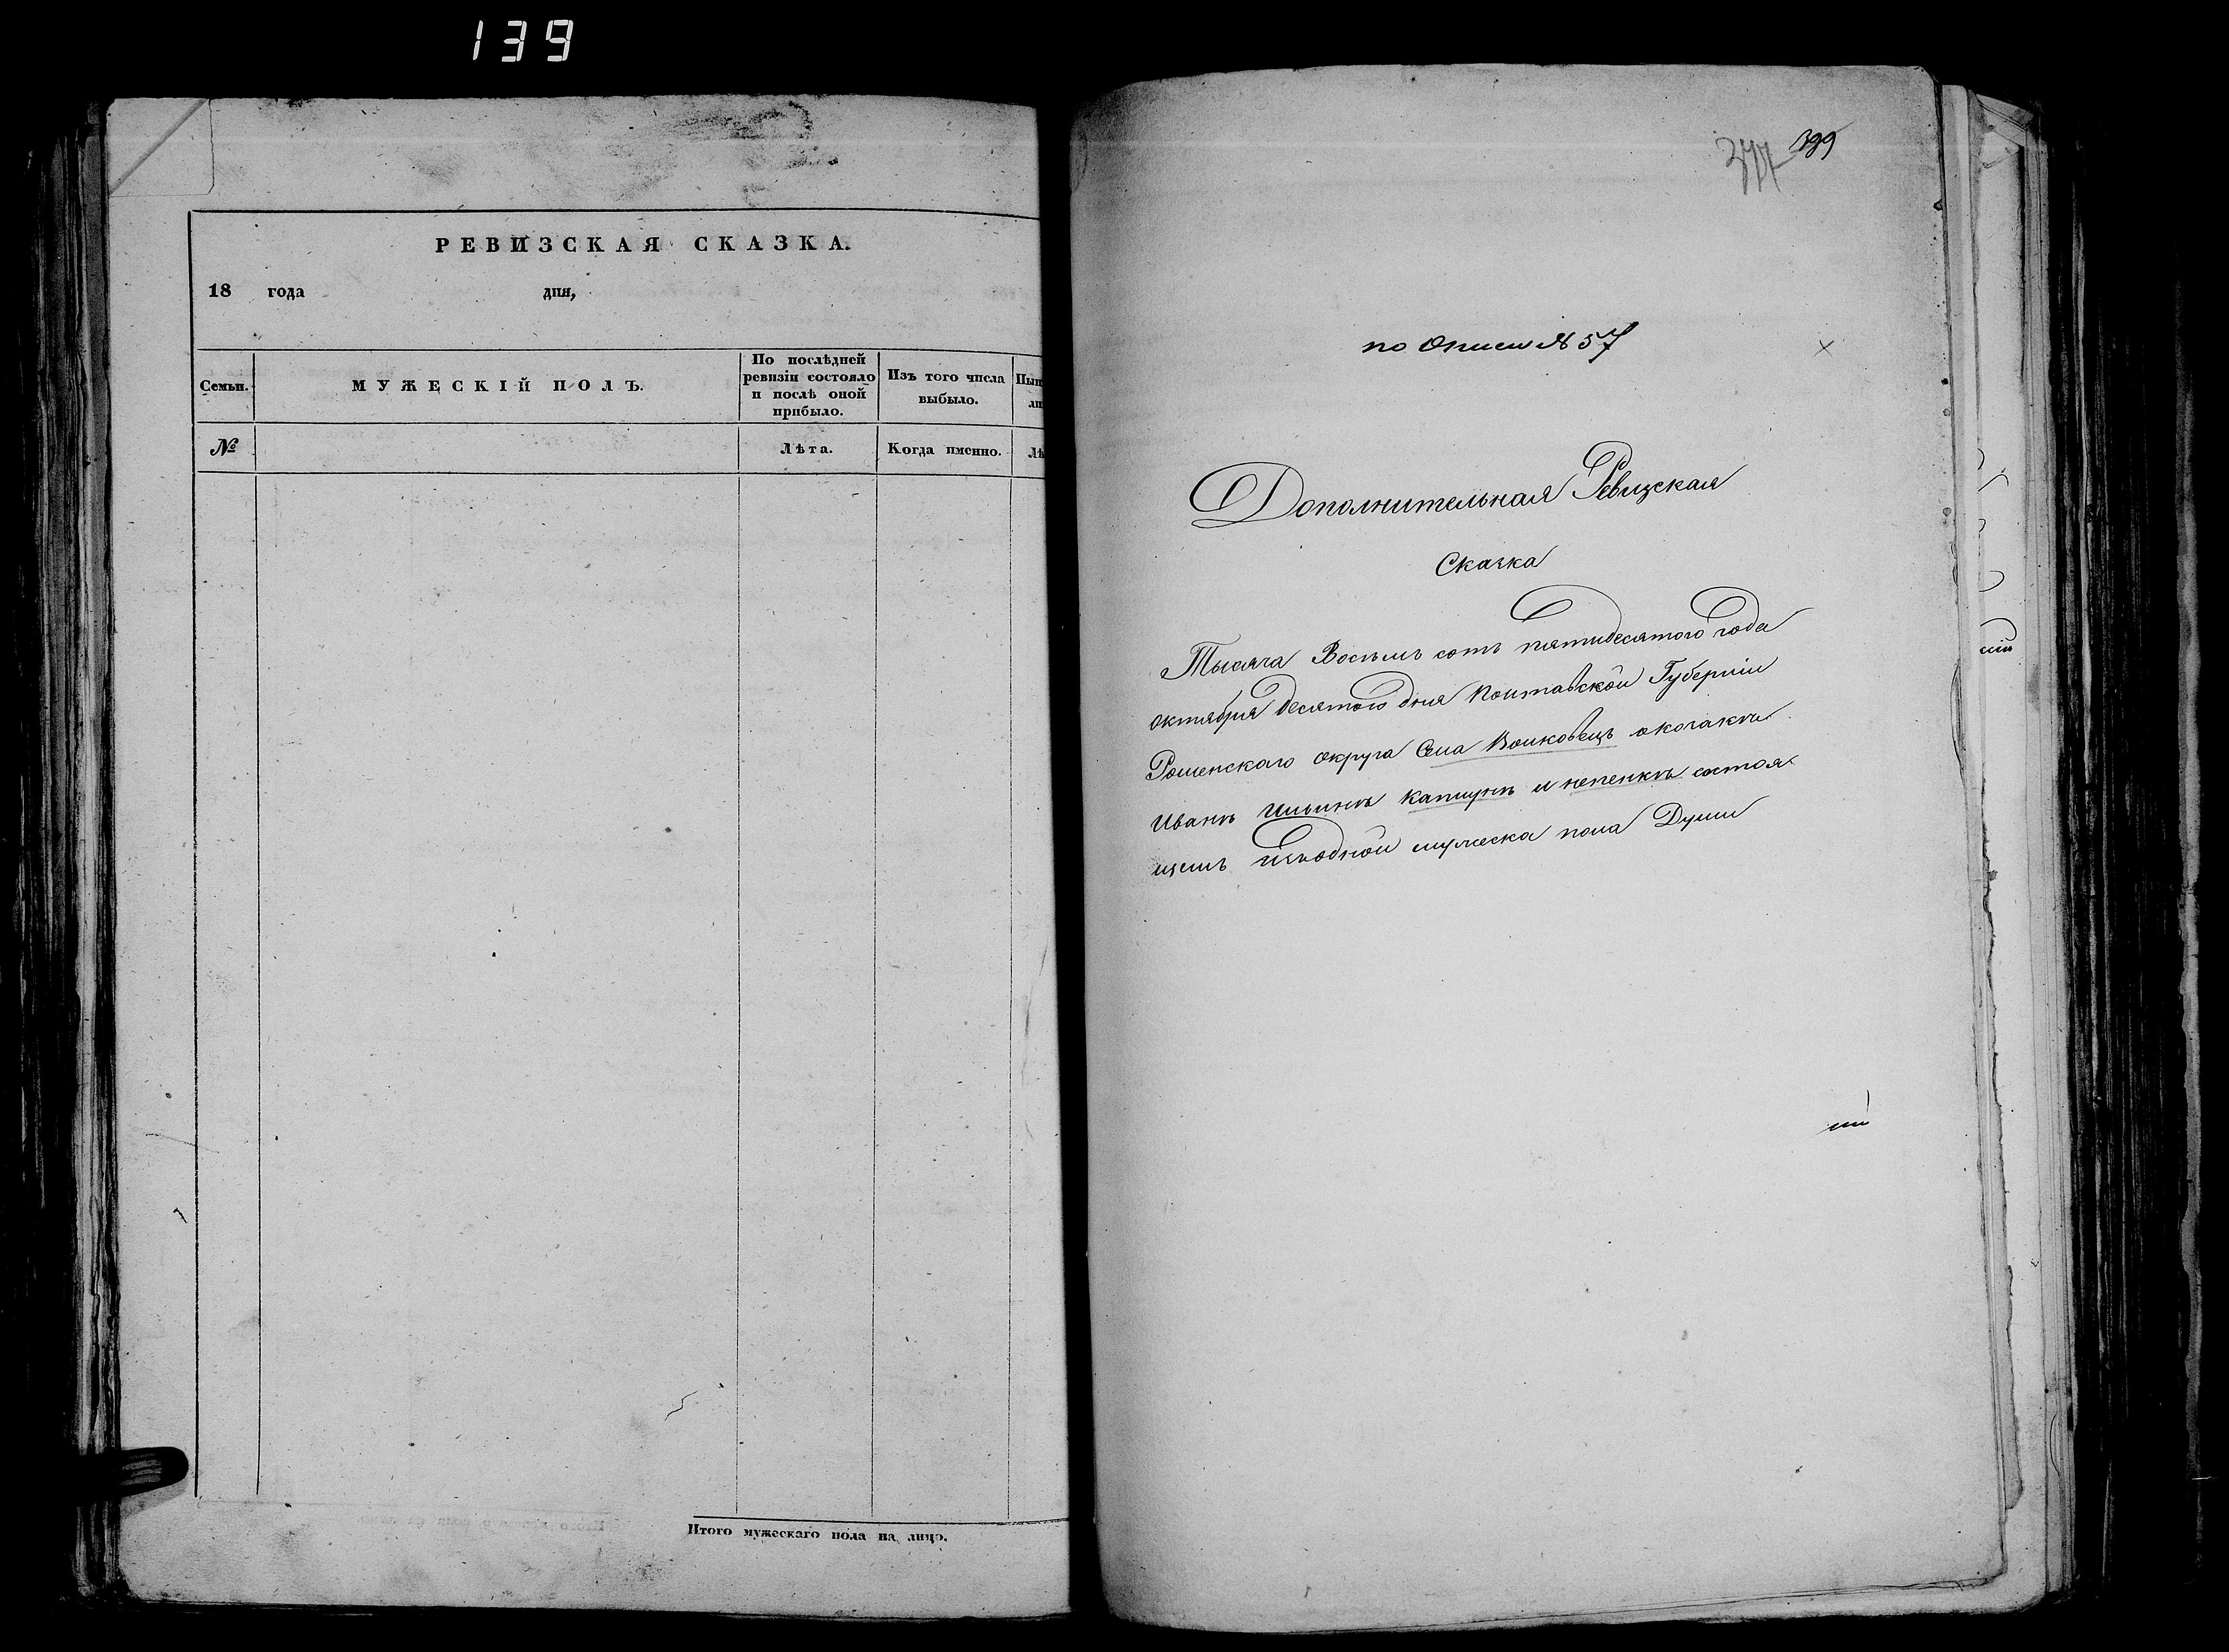 139
РЕВИЗСКАЯ СКАЗКА.
18 года дня,
Семьи.
МУЖЕСКІЙ ПОЛЪ.
По послѣдней
ревизіи состояло
и послѣ оной
прибыло.
Изъ того числа
выбыло.
№
Лѣта.
Когда именно.
Лѣ
Итого мужескаго пола на лицо.
377 399
по Описи № 57
Дополнительная Ревизская
Сказка
Тысяча Восемь сотъ пятидесятого года
октября десятого дня Полтавской Губерніи
Роменского округа Села Волковецъ о козакѣ
Иванѣ Ильинѣ и состоя
щемъ изъ одной мужеска пола Души